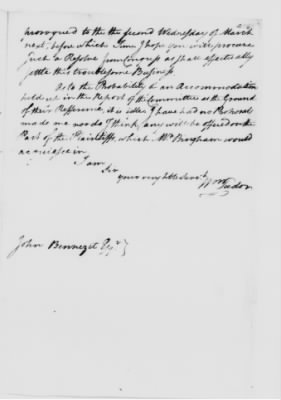 prorogued to the the second Wednesday of March
next, before which Time I hope you will procure
such a Resolve from Congress as shall effectually
settle this troublesome Business.
As to the Probability of an Accommodation
held up in the Report of the Committee as the Ground
of their Reference, it is idle. I have had no Proposal
made me nor do I think any will be offered on the
Part of the Plaintiffs, which Mr Bingham would
acquiesce in.
I am
Sir
your very hble Servt
Wm Tudor
John Bennezet Esqr